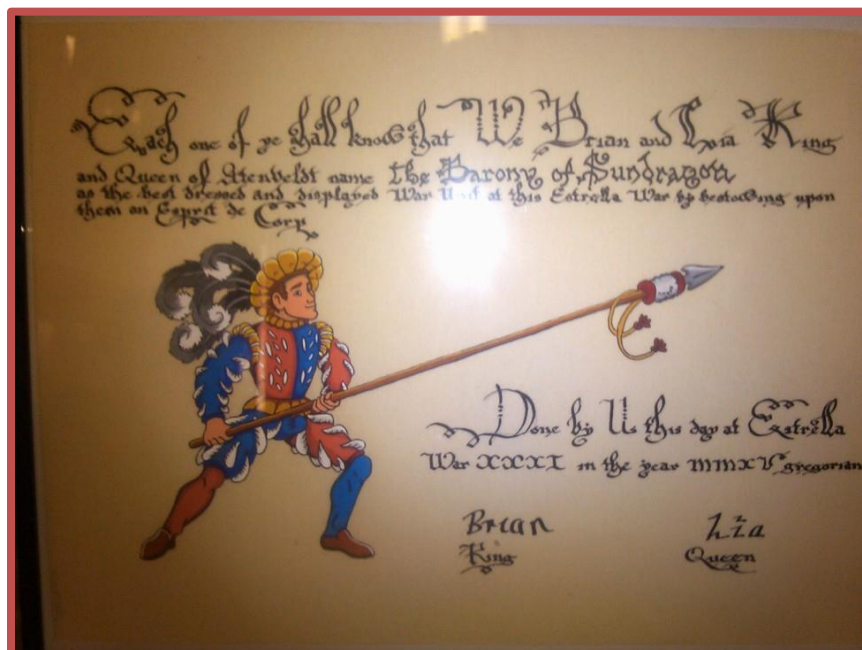 Each one of ye shall know that We Brian and Lvia King
and Queen of Atenveldt name the Barony of Sundragon
as the best dressed and displayed War Unit at this Estrella War by bestowing upon
them on Esprit de Corp
Done by Us this day at Estrella
War XXXI in the year MMXV gregorian
Brian
King
Lia
Queen